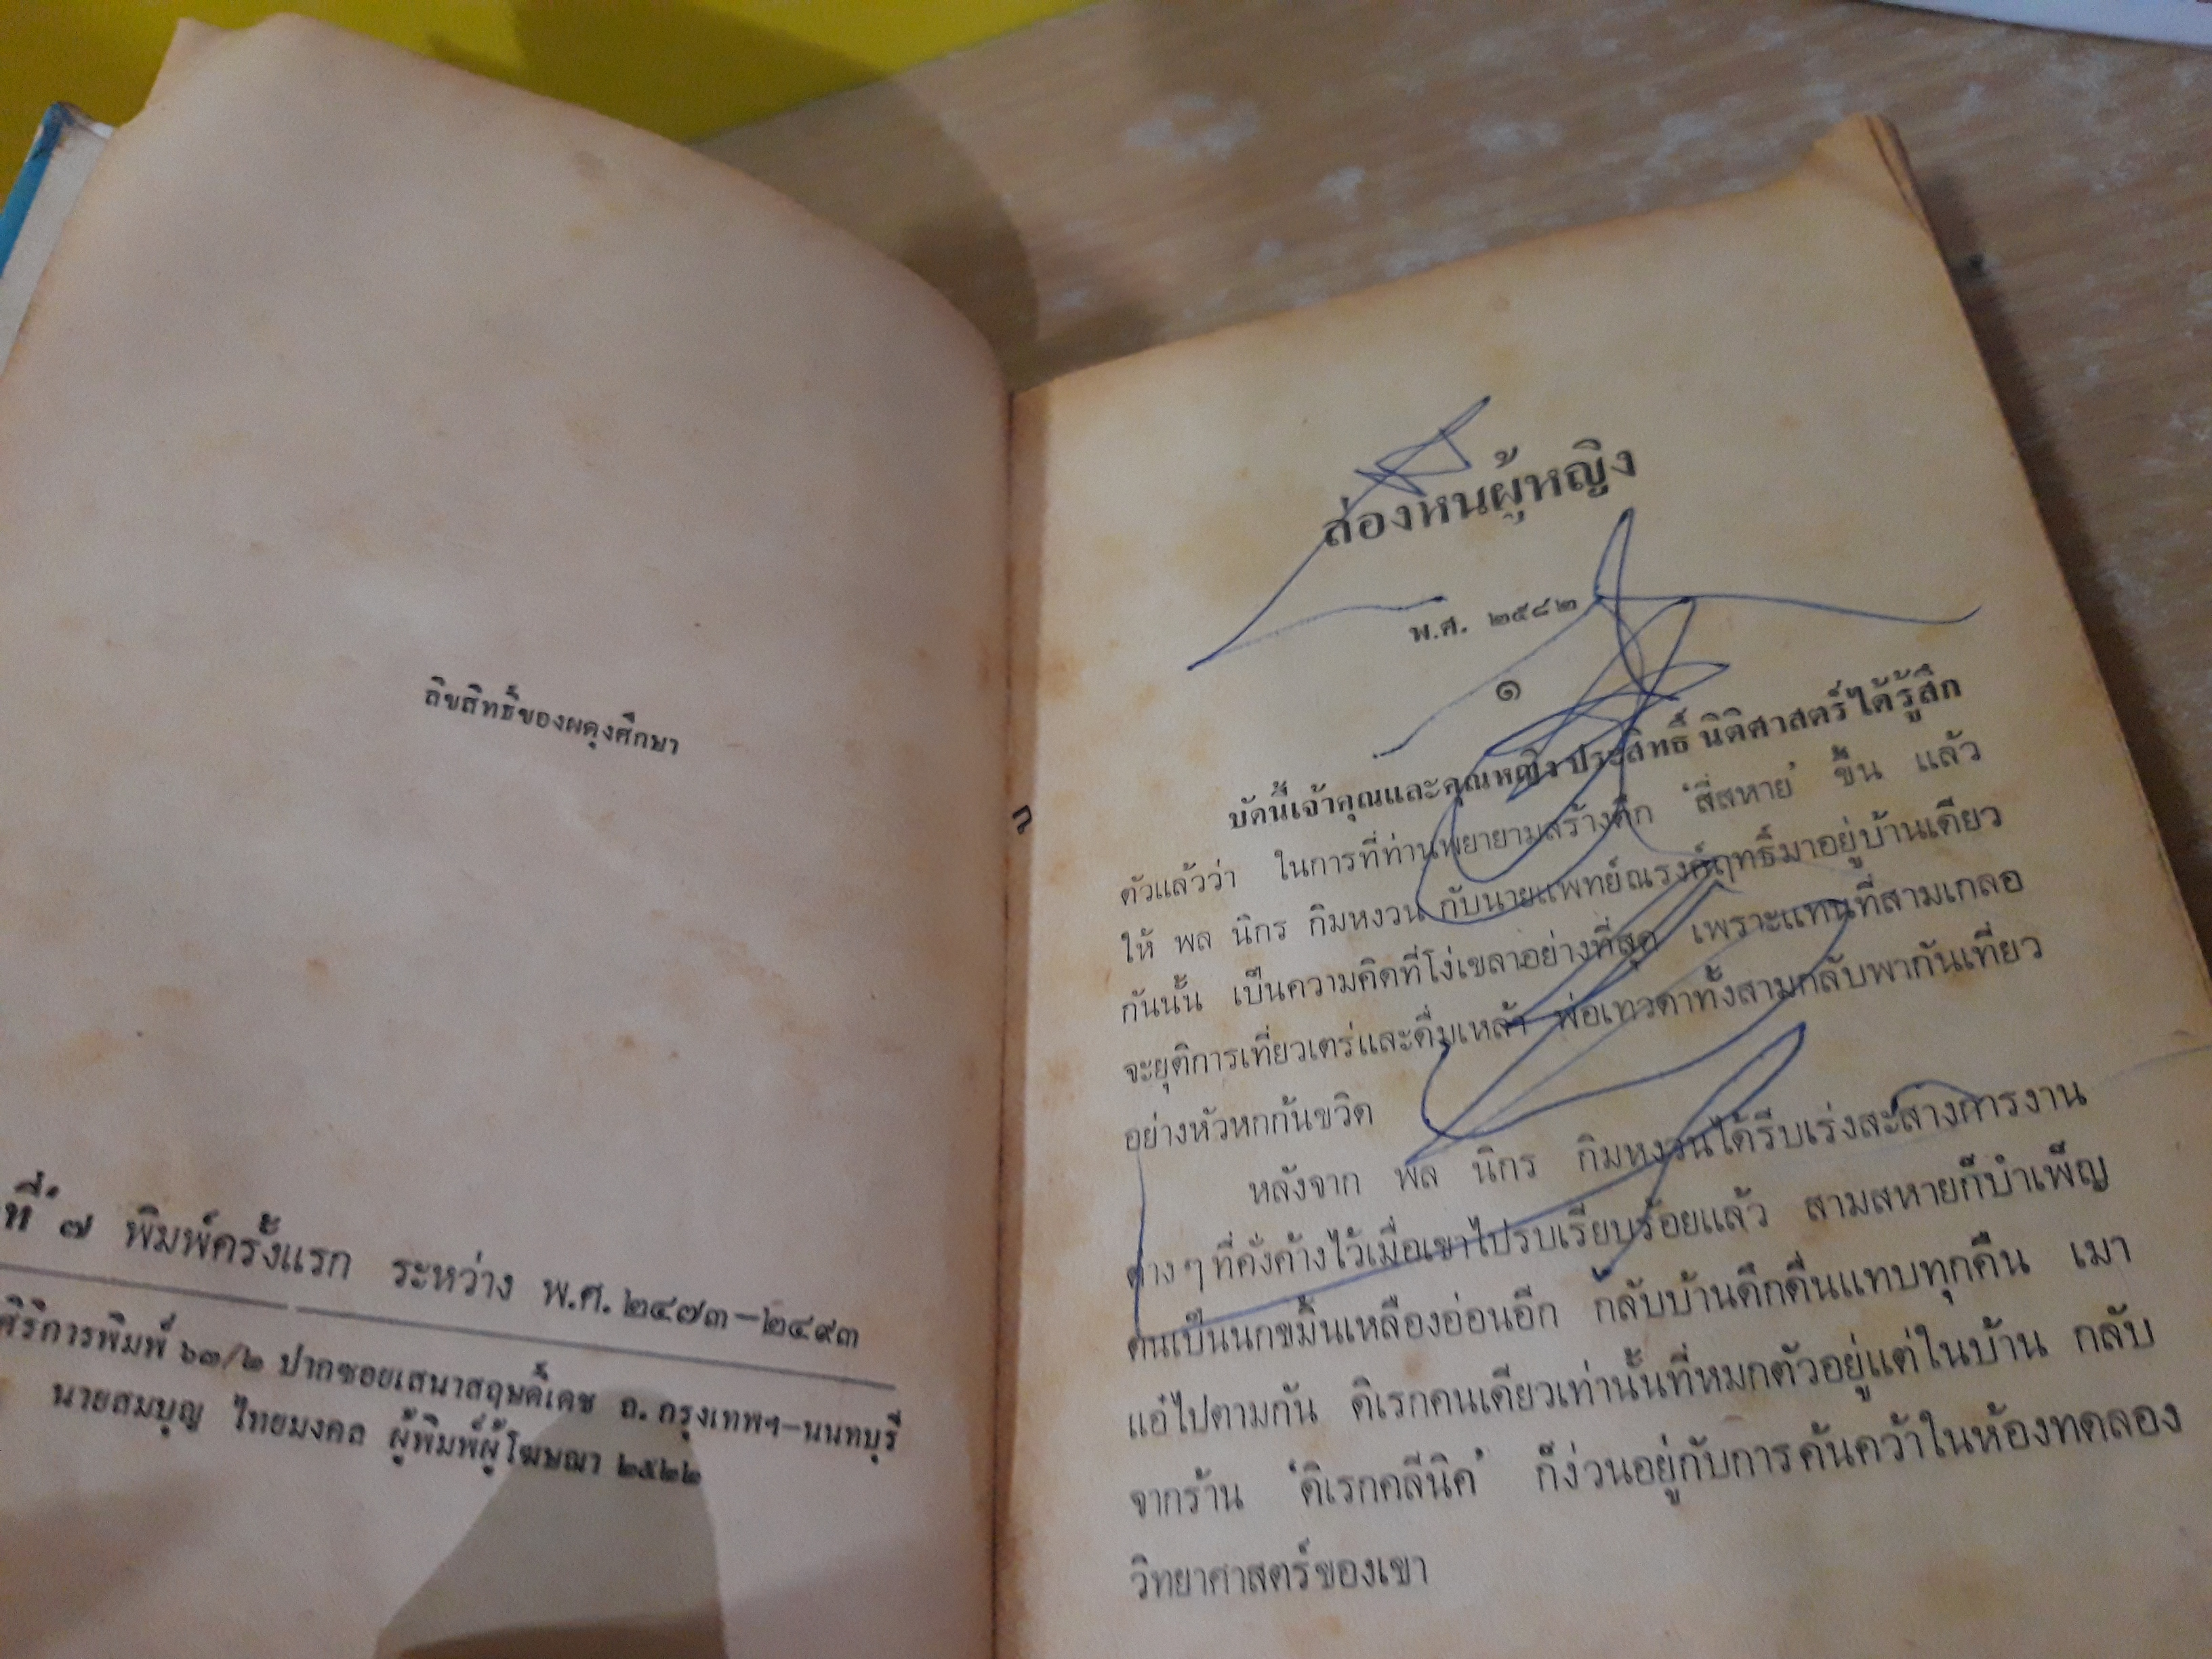 ลิขสิทธิ์ของผดุงศึกษา
ที่ ๗ พิมพ์ครั้งแรก ระหว่าง พ.ศ. ๒๔๗๓–๒๔๙๓
ศิริการพิมพ์ ๖๓/๒ ปากซอยเสนาสฤษดิ์เดช ถ. กรุงเทพฯ–นนทบุรี
นายสมบุญ ไทยมงคล ผู้พิมพ์ผู้โฆษณา ๒๕๒๒
ล่องหนผู้หญิง
พ.ศ. ๒๔๘๒
๑
บัดนี้เจ้าคุณและคุณหญิง ประสิทธิ์ นิติศาสตร์ ได้รู้สึก
ตัวแล้วว่า ในการที่ท่านพยายามสร้างตึก ‘สี่สหาย’ ขึ้น แล้ว
ให้ พล นิกร กิมหงวน กับนายแพทย์ณรงค์ฤทธิ์มาอยู่บ้านเดียว
กันนั้น เป็นความคิดที่โง่เขลาอย่างที่สุด เพราะแทนที่สามเกลอ
จะยุติการเที่ยวเตร่และดื่มเหล้า พ่อเทวดาทั้งสามกลับพากันเที่ยว
อย่างหัวหกก้นขวิด
หลังจาก พล นิกร กิมหงวนได้รีบเร่งสะสางการงาน
ต่าง ๆ ที่คั่งค้างไว้เมื่อเขาไปรบเรียบร้อยแล้ว สามสหายก็บำเพ็ญ
ตนเป็นนกขมิ้นเหลืองอ่อนอีก กลับบ้านดึกดื่นแทบทุกคืน เมา
แอ๋ไปตามกัน ดิเรกคนเดียวเท่านั้นที่หมกตัวอยู่แต่ในบ้าน กลับ
จากร้าน ‘ดิเรกคลีนิค’ ก็ง่วนอยู่กับการค้นคว้าในห้องทดลอง
วิทยาศาสตร์ของเขา